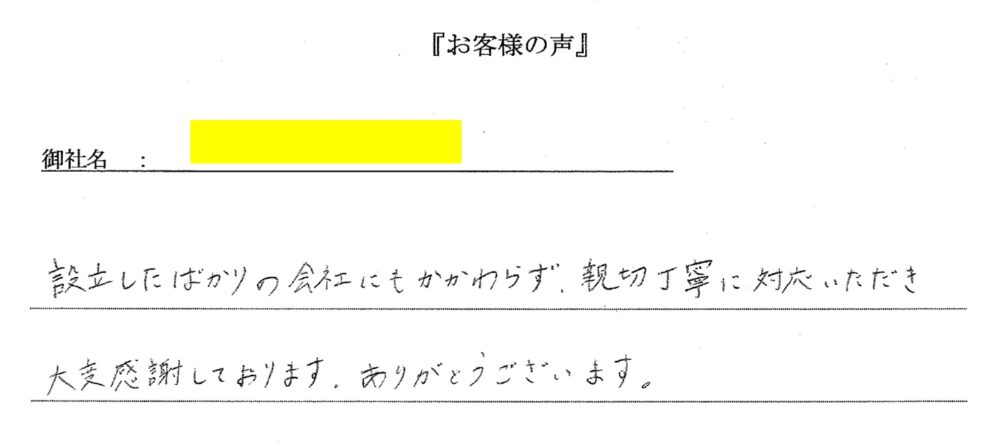 『お客様の声』
御社名 :
設立したばかりの会社にもかかわらず、親切丁寧に対応いただき
大変感謝しております。ありがとうございます。